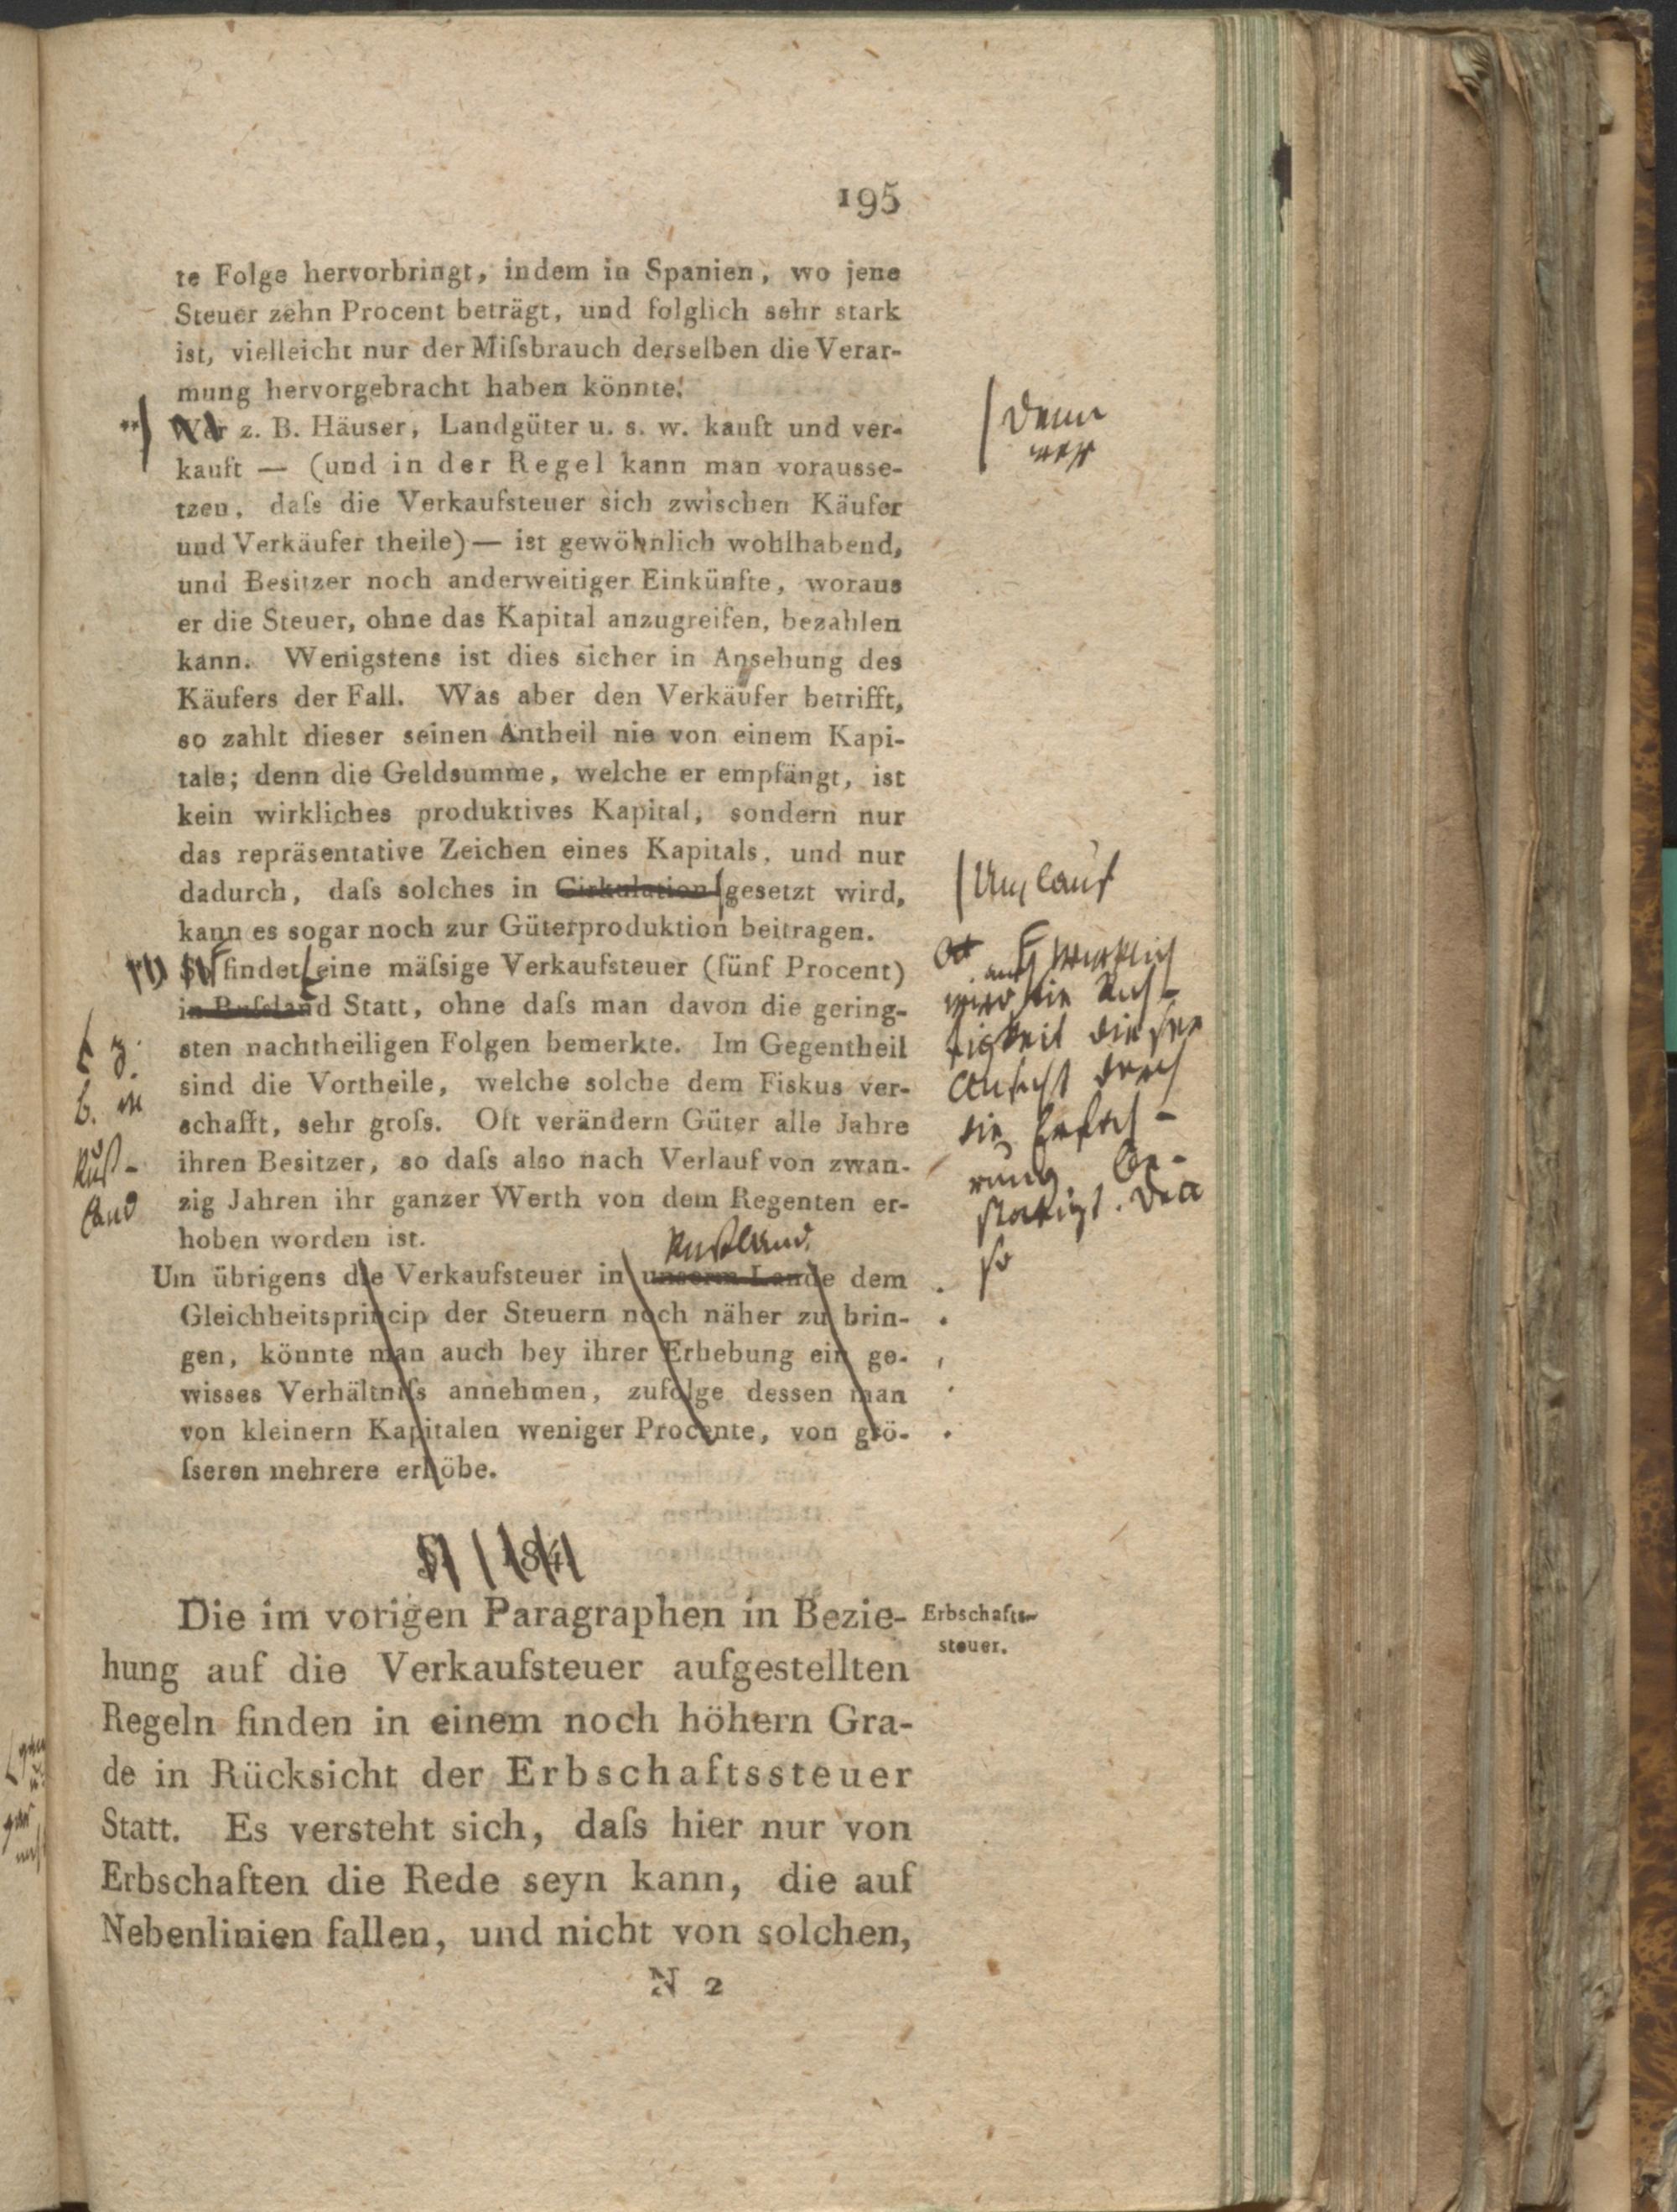 195
te Folge hervorbringt, indem in Spanien, wo jene
Steuer zehn Procent beträgt, und folglich sehr stark
ist, vielleicht nur der Miſsbrauch derselben die Verar-
mung hervorgebracht haben könnte.
Wer z. B. Häuser, Landgüter u. s. w. kauft und ver-
kauft — (und in der Regel kann man vorausse-
tzen, daſs die Verkaufsteuer sich zwischen Käufer
und Verkäufer theile) — ist gewöhnlich wohlhabend,
und Besitzer noch anderweitiger Einkünfte, woraus
er die Steuer, ohne das Kapital anzugreifen, bezahlen
kann. Wenigstens ist dies sicher in Ansehung des
Käufers der Fall. Was aber den Verkäufer betrifft,
so zahlt dieser seinen Antheil nie von einem Kapi-
tale; denn die Geldsumme, welche er empfängt, ist
kein wirkliches produktives Kapital, sondern nur
das repräsentative Zeichen eines Kapitals, und nur
dadurch, daſs solches in Cirkulation gesetzt wird,
kann es sogar noch zur Güterproduktion beitragen.
So findet eine mäſsige Verkaufsteuer (fünf Procent)
in Ruſsland Statt, ohne daſs man davon die gering-
sten nachtheiligen Folgen bemerkte. Im Gegentheil
sind die Vortheile, welche solche dem Fiskus ver-
schafft, sehr groſs. Oft verändern Güter alle Jahre
ihren Besitzer, so daſs also nach Verlauf von zwan-
zig Jahren ihr ganzer Werth von dem Regenten er-
hoben worden ist.
Rußland
Um übrigens die Verkaufsteuer in unserm Lande dem
Gleichheitsprincip der Steuern noch näher zu brin-
gen, könnte man auch bey ihrer Erhebung ein ge-
wisses Verhältniſs annehmen, zufolge dessen man
von kleinern Kapitalen weniger Procente, von grö-
ſseren mehrere erhöbe.
§ 184
Die im vorigen Paragraphen in Bezie-
hung auf die Verkaufsteuer aufgestellten
Regeln finden in einem noch höhern Gra-
de in Rücksicht der Erbschaftssteuer
Statt. Es versteht sich, daſs hier nur von
Erbschaften die Rede seyn kann, die auf
Nebenlinien fallen, und nicht von solchen,
N 2
Erbschafts-
steuer.
Denn
wer
Umlauf
auch wirklich
wird die Rich-
tigkeit dieser
Ansicht durch
die Erfah-
rung be-
stätigt. Den
so
z.
B. in
Ruß-
land